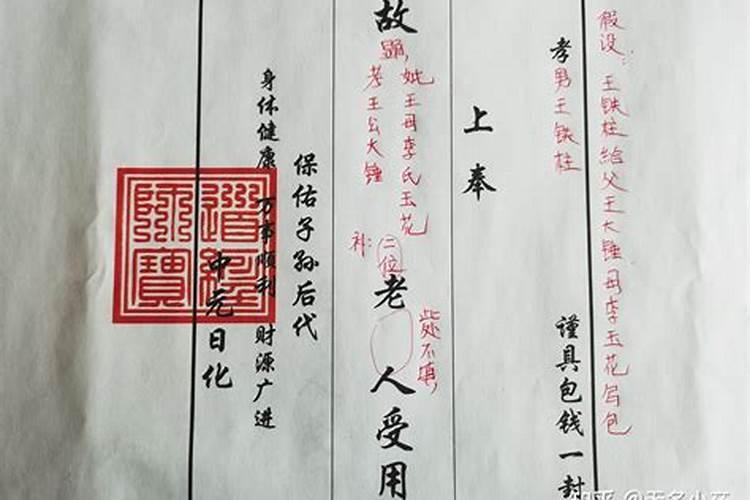 假设：王铁柱给父王大锤母李玉花写包
孝男王铁柱 谨具包钱一封
上奉
故
显，
妣王母李氏玉花
考王公大锤
补：二位
老 人受用
此处不填，
保佑子孙后代
身体健康 万事顺利 财源广进
中元日化
道经师宝
知乎